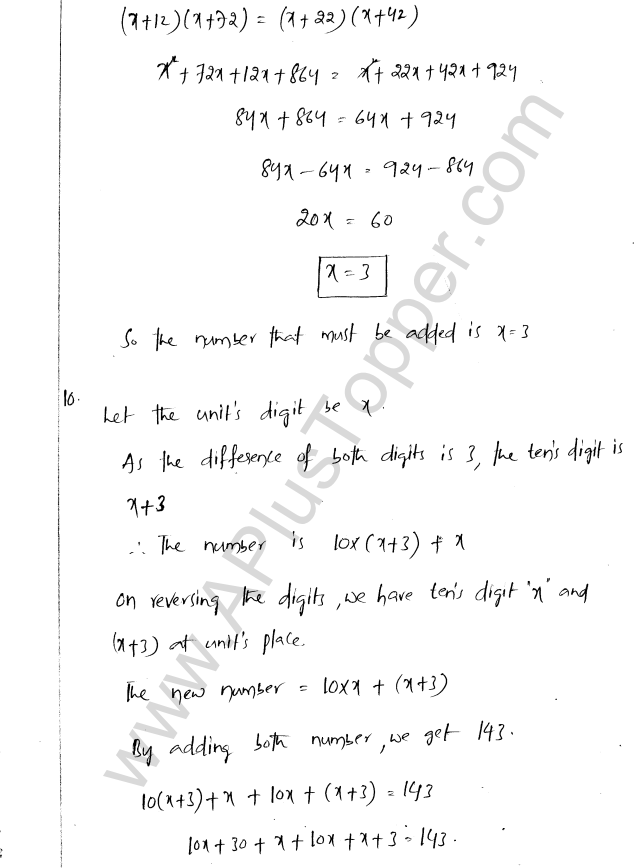 (x+12)(x+72) = (x+22)(x+42)
x²+72x+12x+864 = x²+22x+42x+924
84x+864 = 64x+924
84x-64x = 924-864
20x = 60
x = 3
So the number that must be added is x=3
10.
Let the unit's digit be x.
As the difference of both digits is 3, the ten's digit is
x+3
∴ The number is 10×(x+3) + x
On reversing the digits, we have ten's digit 'x' and
(x+3) at unit's place.
The new number = 10×x + (x+3)
By adding both number, we get 143.
10(x+3)+x + 10x + (x+3) = 143
10x+30 + x+10x + x+3 = 143.
www.APlusTopper.com